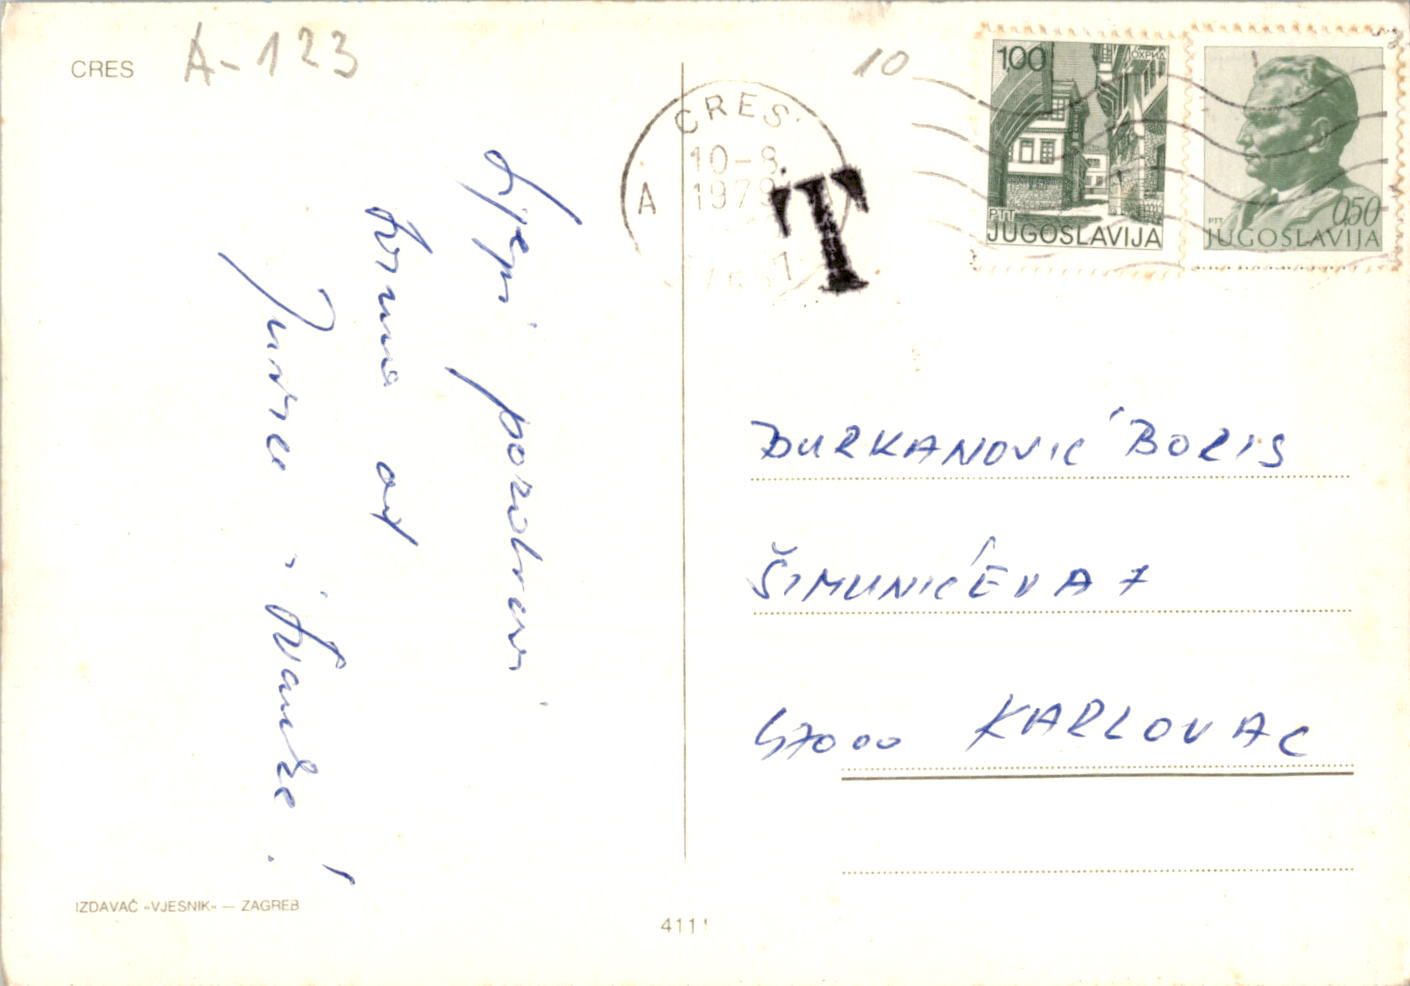 CRES
A-123
10
CRES
10-8
1979
A
T
1,00
ОХРИД
PTT
JUGOSLAVIJA
PTT
0,50
JUGOSLAVIJA
Lijepi pozdravi
svima od
Jurice i
ĐURKANOVIĆ BORIS
ŠIMUNIĆEVA 7
47000 KARLOVAC
IZDAVAČ »VJESNIK« — ZAGREB
4111